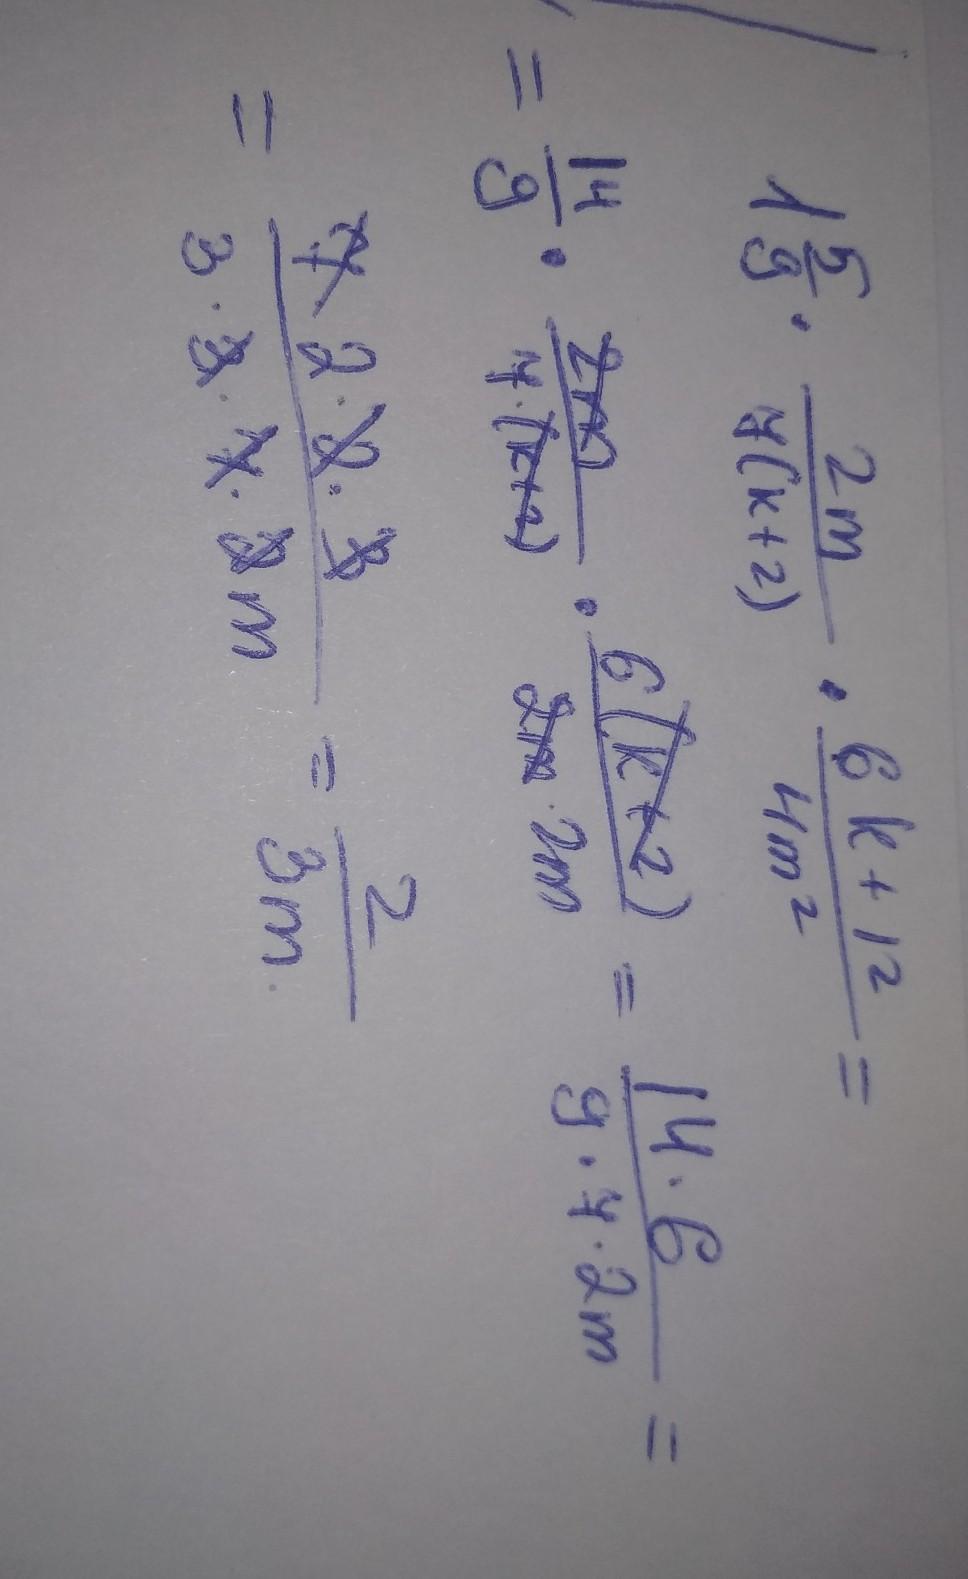 1 5/9 · 2m/7(k+2) · 6k+12/4m² =
= 14/9 · 2m/7·(k+2) · 6(k+2)/2m·2m = 14·6/9·7·2m =
= 7·2·2·3/3·3·7·2m = 2/3m.